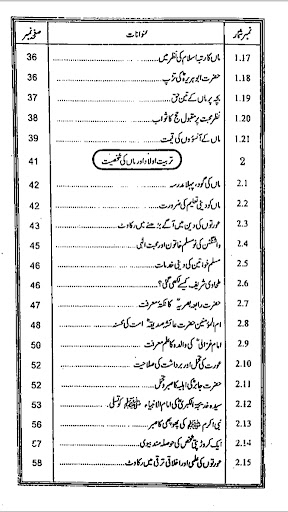 نمبر شمار عنوانات صفحہ نمبر
1.17 ماں کا رتبہ اسلام کی نظر میں 36
1.18 حضرت ابو ہریرہؓ کی تڑپ 36
1.19 بچہ پر ماں کے تین حق 37
1.20 نظر محبت پر مقبول حج کا ثواب 38
1.21 ماں کے آنسوؤں کی قیمت 39
2 تربیت اولاد اور ماں کی شخصیت 41
2.1 ماں کی گود، پہلا مدرسہ 42
2.2 ماں کو دینی تعلیم کی ضرورت 42
2.3 عورتوں کی دین میں آگے بڑھنے میں رکاوٹ 43
2.4 واشنگٹن کی نو مسلم خاتون اور محبت الٰہی 45
2.5 مسلم خواتین کی دینی خدمات 46
2.6 طحاوی شریف کیسے لکھی گئی؟ 46
2.7 حضرت رابعہ بصریہؒ کا نکتۂ معرفت 47
2.8 ام المؤمنین حضرت عائشہ صدیقہؓ امت کی محسنہ 48
2.9 امام غزالیؒ کی والدہ کا علم معرفت 50
2.10 عورت کی تحمل اور برداشت کی صلاحیت 52
2.11 حضرت جابرؓ کی اہلیہ کا صبر و تحمل 52
2.12 سیدہ خدیجۃ الکبریٰؓ کی امام الانبیاء ﷺ کو تسلی 53
2.13 نبی اکرم ﷺ کی پھوپھی کا صبر 56
2.14 ایک کروڑ پتی شخص کی حوصلہ مند بیوی 57
2.15 عورتوں کی علمی اور اخلاقی ترقی میں رکاوٹ 58